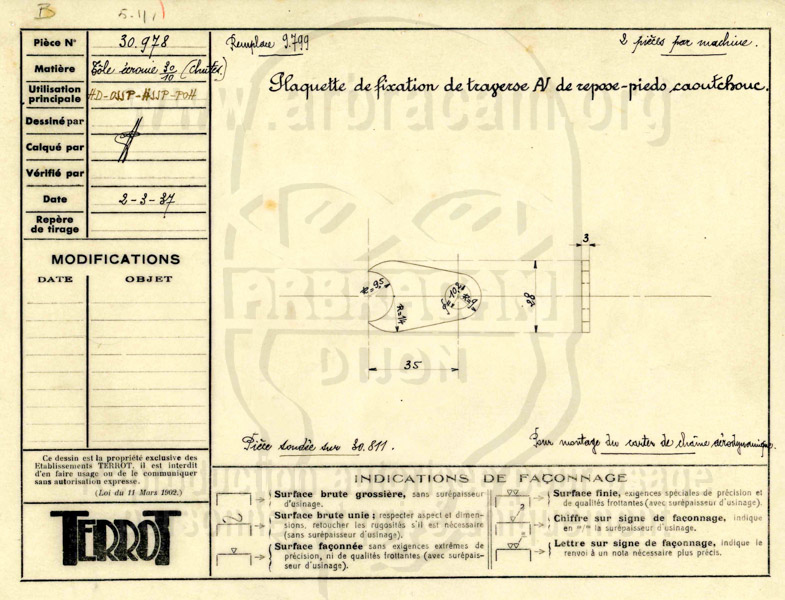 B
5.11
Pièce N° 30.978
Remplace 9.799
2 pièces par machine.
Matière Tôle écrouie 30/10 (Chutes)
Plaquette de fixation de traverse AV de repose-pieds caoutchouc.
Utilisation principale HD-OSSP-HSSP-POH
Dessiné par
Calqué par
Vérifié par
Date 2-3-37
Repère de tirage
MODIFICATIONS
DATE OBJET
3
R=9,5
10,2
R=9
R=14
28
35
ARBRACAM
DIJON
www.arbracam.org
Pièce soudée sur 30.811.
Pour montage du carter de chaîne aérodynamique.
Ce dessin est la propriété exclusive des
Etablissements TERROT, il est interdit
d'en faire usage ou de le communiquer
sans autorisation expresse.
(Loi du 11 Mars 1902.)
TERROT
INDICATIONS DE FAÇONNAGE
Surface brute grossière, sans surépaisseur
d'usinage.
Surface brute unie ; respecter aspect et dimen-
sions, retoucher les rugosités s'il est nécessaire
(sans surépaisseur d'usinage).
Surface façonnée sans exigences extrêmes de
précision, ni de qualités frottantes (avec surépais-
seur d'usinage).
Surface finie, exigences spéciales de précision et
de qualités frottantes (avec surépaisseur d'usinage).
Chiffre sur signe de façonnage, indique
en m/m la surépaisseur d'usinage.
Lettre sur signe de façonnage, indique le
renvoi à un nota nécessaire plus précis.